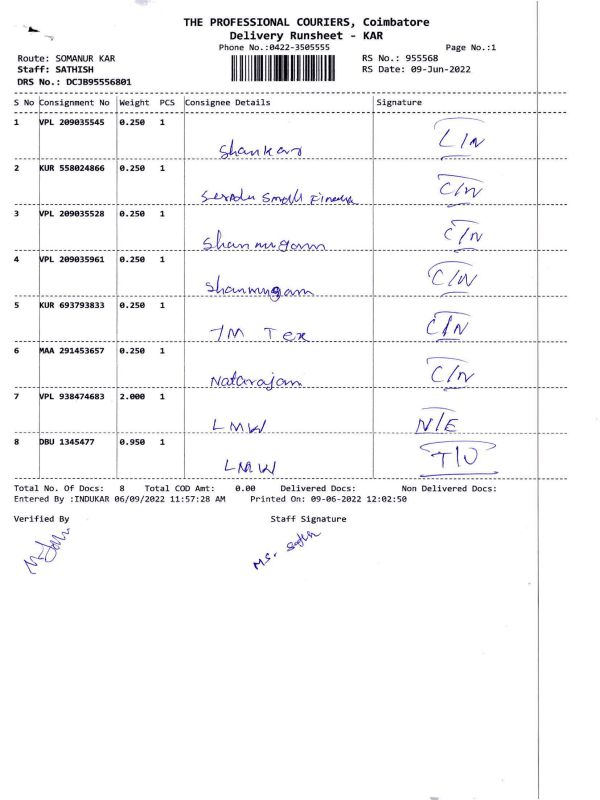 THE PROFESSIONAL COURIERS, Coimbatore
Delivery Runsheet - KAR
Phone No.:0422-3505555 Page No.:1
Route: SOMANUR KAR RS No.: 955568
Staff: SATHISH RS Date: 09-Jun-2022
DRS No.: DCJB95556801
S No Consignment No Weight PCS Consignee Details Signature
1 VPL 209035545 0.250 1 Shankar L/N
2 KUR 558024866 0.250 1 Small C/N
3 VPL 209035528 0.250 1 Shanmugam C/N
4 VPL 209035961 0.250 1 Shanmugam C/N
5 KUR 693793833 0.250 1 Tex C/N
6 MAA 291453657 0.250 1 Natarajan C/N
7 VPL 938474683 2.000 1 LMW N/E
8 DBU 1345477 0.950 1 LMW
Total No. Of Docs: 8 Total COD Amt: 0.00 Delivered Docs: Non Delivered Docs:
Entered By :INDUKAR 06/09/2022 11:57:28 AM Printed On: 09-06-2022 12:02:50
Verified By Staff Signature